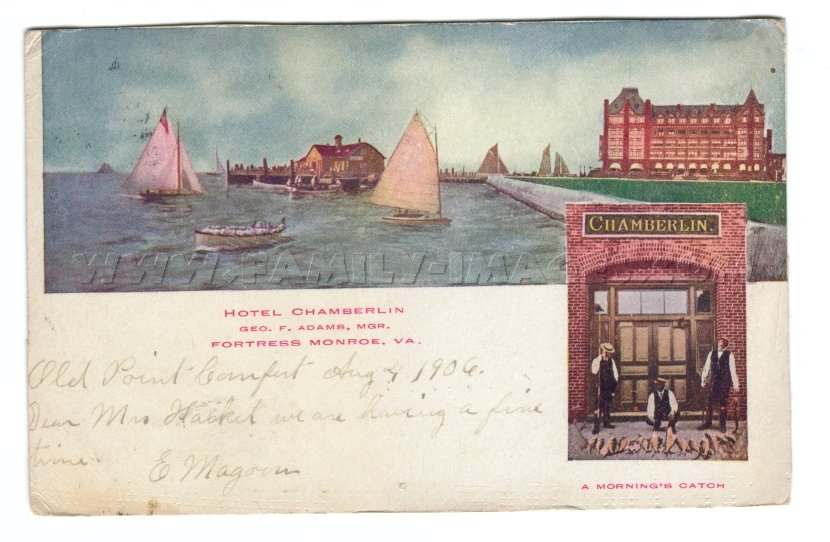 WWW.FAMILY-IMAG
CHAMBERLIN.
HOTEL CHAMBERLIN
GEO. F. ADAMS, MGR.
FORTRESS MONROE, VA.
Old Point Comfort Aug 4 1906.
Dear Mrs Hacket we are having a fine
time.
E Magoun
A MORNING'S CATCH